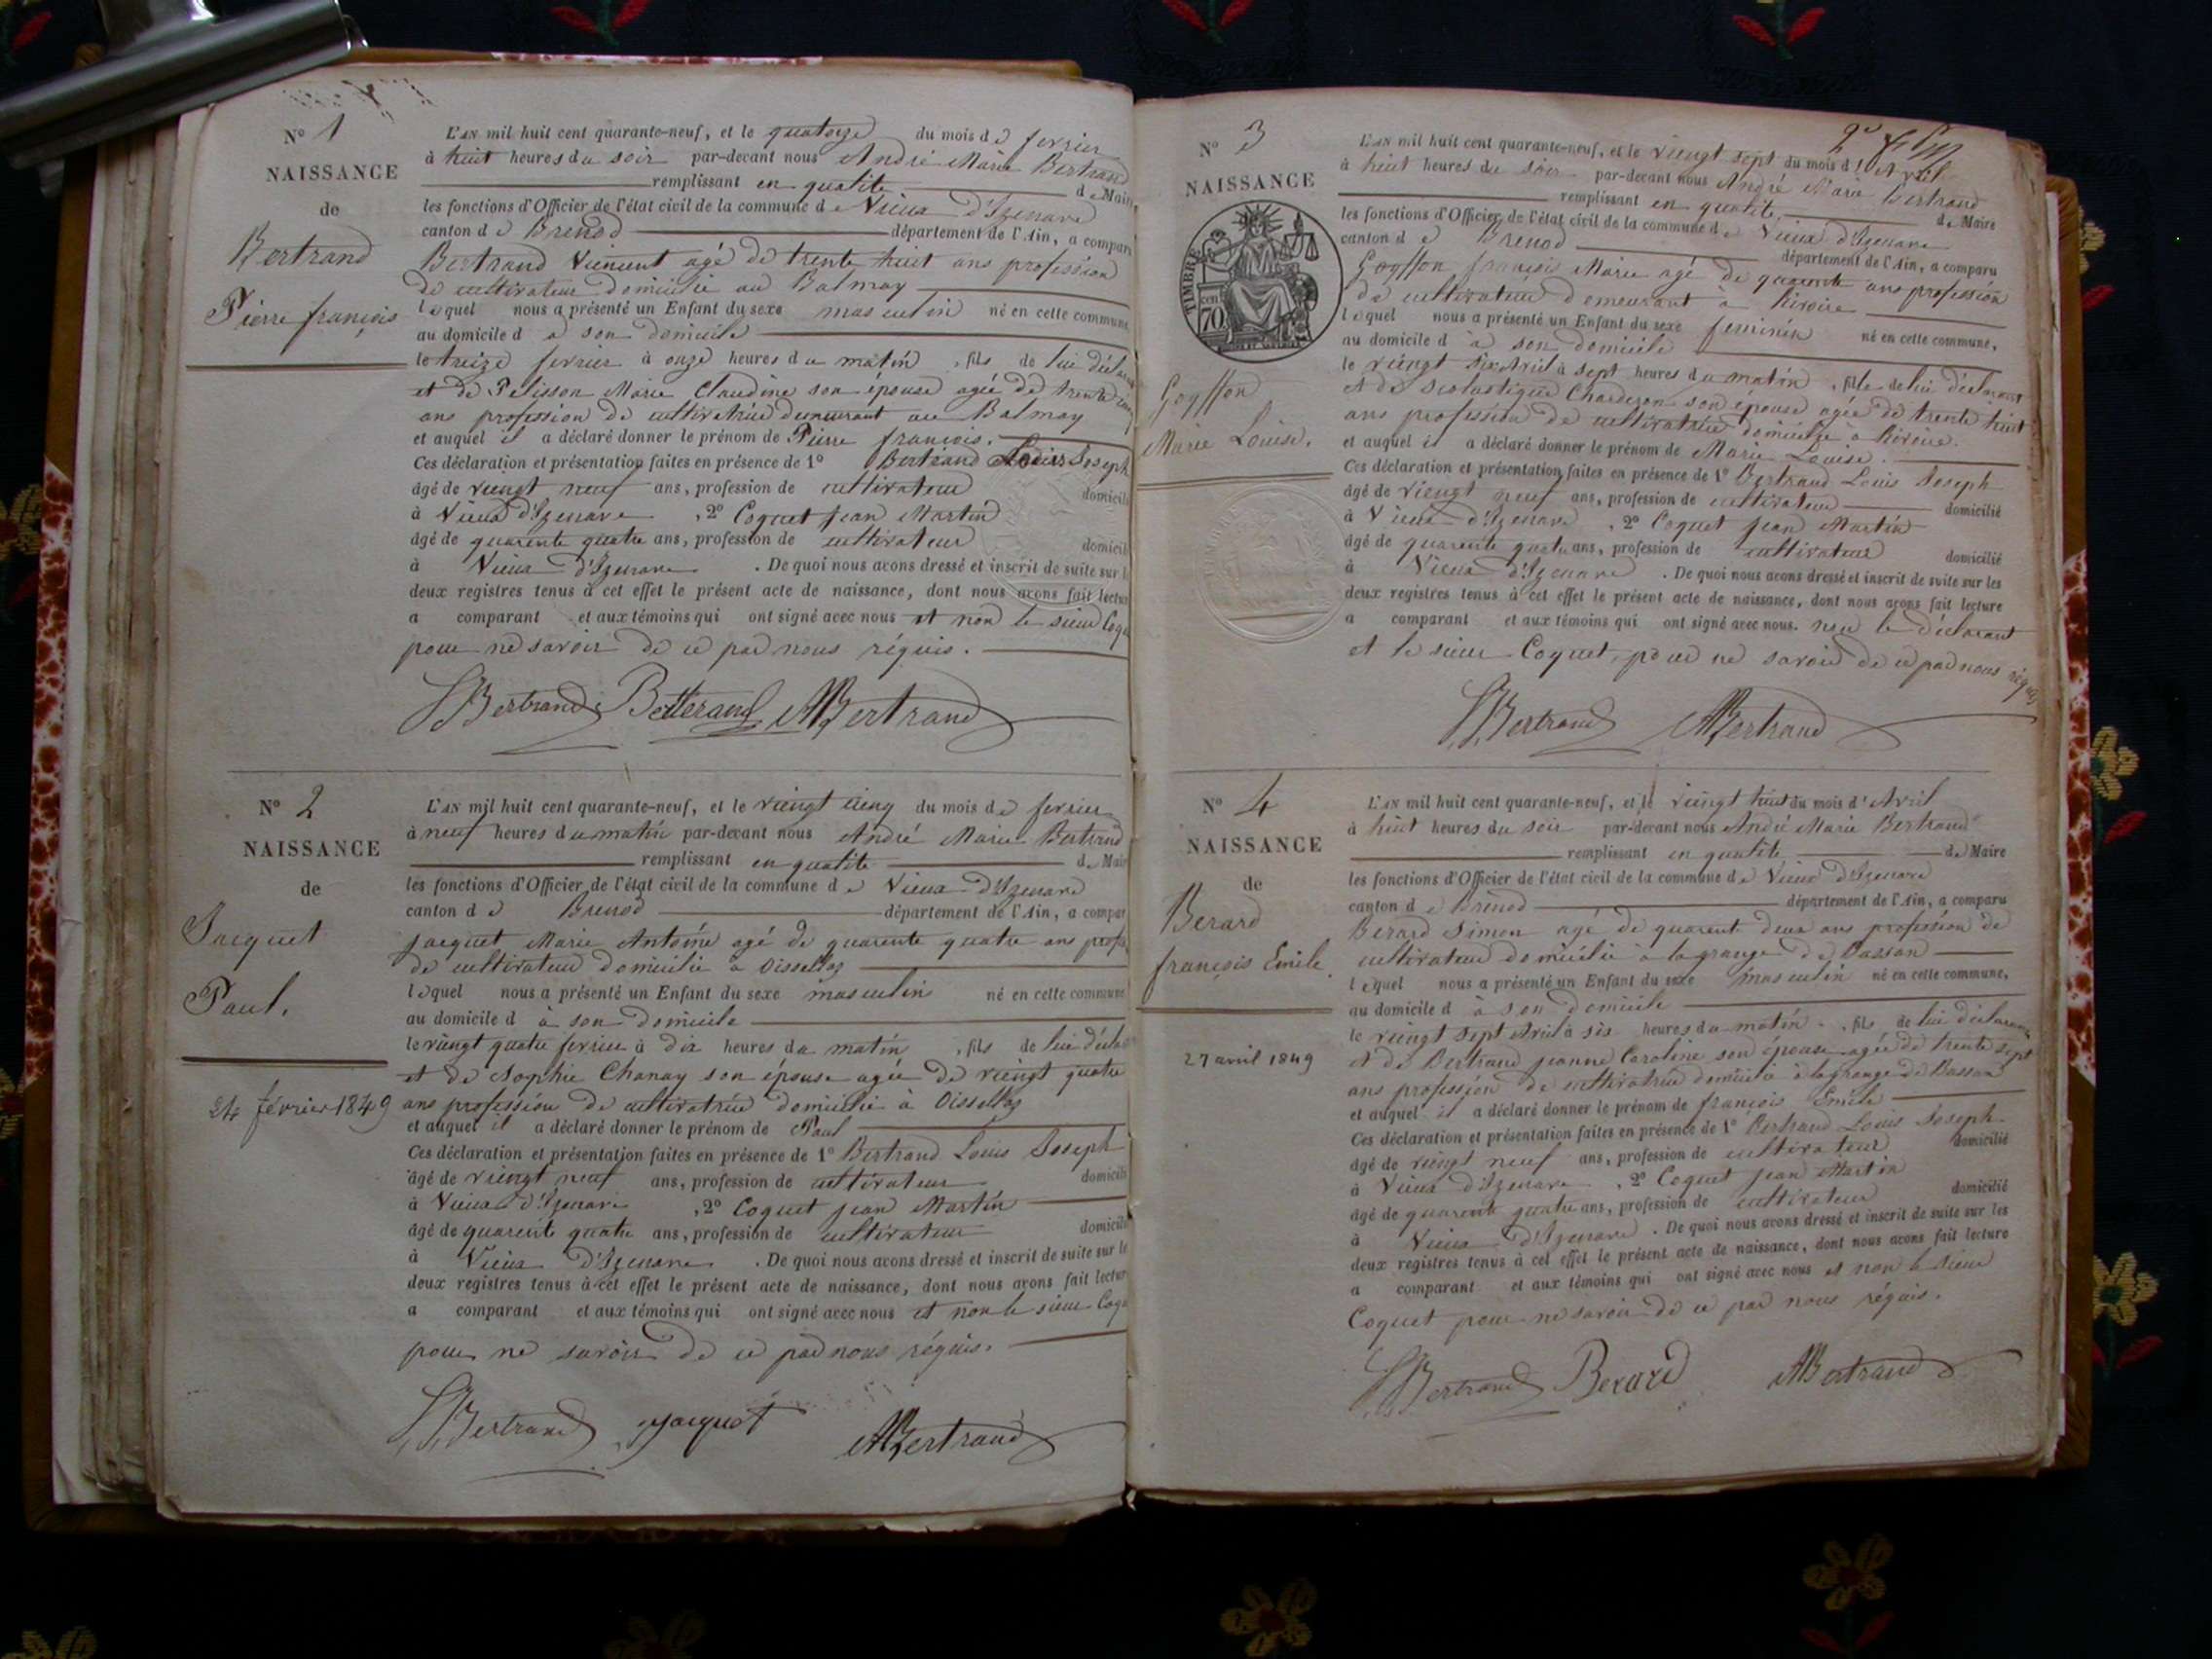 N° 1
NAISSANCE
de
Bertrand
Pierre françois
L'AN mil huit cent quarante-neuf, et le quatorze du mois de fevrier
à huit heures du soir par-devant nous André Marie Bertrand
remplissant en qualite de Maire
les fonctions d'Officier de l'état civil de la commune de Vieux d'Izenave
canton de Brenod département de l'Ain, a compar
Bertrand Vincent agé de trente huit ans profession
de cultivateur domicilié au Balmay
lequel nous a présenté un Enfant du sexe masculin né en cette commune,
au domicile d à son domicile
le treize fevrier à onze heures du matin , fils de lui déclarant
et de Pelisson Marie Claudine son épouse agée de trente
ans profession de cultivatrice demeurant au Balmay
et auquel il a déclaré donner le prénom de Pierre françois.
Ces déclaration et présentation faites en présence de 1° Bertrand Louis Joseph
âgé de vingt neuf ans, profession de cultivateur domicili
à Vieux d'Izenave , 2° Coquet jean Martin
âgé de quarente quatre ans, profession de cultivateur domicili
à Vieux d'Izenave . De quoi nous avons dressé et inscrit de suite sur l
deux registres tenus à cet effet le présent acte de naissance, dont nous avons fait lectur
a comparant et aux témoins qui ont signé avec nous et non le sieur Coqu
pour ne savoir de ce par nous réquis.
LBertrand Bertrand AMBertrand
N° 2
NAISSANCE
de
Jacquet
Paul.
24 février 1849
L'AN mil huit cent quarante-neuf, et le vingt cinq du mois de fevrier
à neuf heures du matin par-devant nous André Marie Bertrand
remplissant en qualite de Mair
les fonctions d'Officier de l'état civil de la commune de Vieux d'Izenave
canton de Brenod département de l'Ain, a compar
jacquet Marie Antoine agé de quarente quatre ans profes
de cultivateur domicilié à Oissellaz
lequel nous a présenté un Enfant du sexe masculin né en cette commune
au domicile d à son domicile
le vingt quatre fevrier à dix heures du matin , fils de lui décla
et de Sophie Chanay son épouse agée de vingt quatre
ans profession de cultivatrice domicilié à Oissellaz
et auquel il a déclaré donner le prénom de Paul
Ces déclaration et présentation faites en présence de 1° Bertrand Louis Joseph
âgé de vingt neuf ans, profession de cultivateur domicili
à Vieux d'Izenave , 2° Coquet jean Martin
âgé de quarente quatre ans, profession de cultivateur domicili
à Vieux d'Izenave . De quoi nous avons dressé et inscrit de suite sur le
deux registres tenus à cet effet le présent acte de naissance, dont nous avons fait lectur
a comparant et aux témoins qui ont signé avec nous et non le sieur Coqu
pour ne savoir de ce par nous réquis.
LBertrand jacquet AMBertrand
N° 3
NAISSANCE
TIMBRE
cen 70
Goyffon
Marie Louise.
L'AN mil huit cent quarante-neuf, et le vingt sept du mois d'Avril
à huit heures du soir par-devant nous André Marie Bertrand
remplissant en qualite de Maire
les fonctions d'Officier de l'état civil de la commune de Vieux d'Izenave
canton de Brenod département de l'Ain, a comparu
Goyffon françois Marie agé de quarente ans profession
de cultivateur demeurant à
lequel nous a présenté un Enfant du sexe feminin né en cette commune,
au domicile d à son domicile
le vingt six Avril à sept heures du matin , fille de lui déclarant
et de Scolastique Charderon son épouse agée de trente huit
ans profession de cultivatrice domicilié à
et auquel il a déclaré donner le prénom de Marie Louise.
Ces déclaration et présentation faites en présence de 1° Bertrand Louis Joseph
âgé de vingt neuf ans, profession de cultivateur domicilié
à Vieux d'Izenave , 2° Coquet jean Martin
âgé de quarente quatre ans, profession de cultivateur domicilié
à Vieux d'Izenave . De quoi nous avons dressé et inscrit de suite sur les
deux registres tenus à cet effet le présent acte de naissance, dont nous avons fait lecture
a comparant et aux témoins qui ont signé avec nous. non le déclarant
et le sieur Coquet, pour ne savoir de ce par nous réquis
LBertrand AMBertrand
N° 4
NAISSANCE
de
Berard
françois Emile
27 avril 1849
L'AN mil huit cent quarante-neuf, et le vingt huit du mois d'Avril
à huit heures du soir par-devant nous André Marie Bertrand
remplissant en qualite de Maire
les fonctions d'Officier de l'état civil de la commune de Vieux d'Izenave
canton de Brenod département de l'Ain, a comparu
Berard Simon agé de quarent deux ans profession de
cultivateur domicilié à la grange de Bassan
lequel nous a présenté un Enfant du sexe masculin né en cette commune,
au domicile d à son domicile
le vingt sept Avril à six heures du matin , fils de lui déclarant
et de Bertrand jeanne Caroline son épouse agée de trente sept
ans profession de cultivatrice domicilié à la grange de Bassan
et auquel il a déclaré donner le prénom de françois Emile
Ces déclaration et présentation faites en présence de 1° Bertrand Louis Joseph
âgé de vingt neuf ans, profession de cultivateur domicilié
à Vieux d'Izenave , 2° Coquet jean Martin
âgé de quarente quatre ans, profession de cultivateur domicilié
à Vieux d'Izenave . De quoi nous avons dressé et inscrit de suite sur les
deux registres tenus à cet effet le présent acte de naissance, dont nous avons fait lecture
a comparant et aux témoins qui ont signé avec nous et non le sieur
Coquet pour ne savoir de ce par nous réquis.
LBertrand Berard AMBertrand